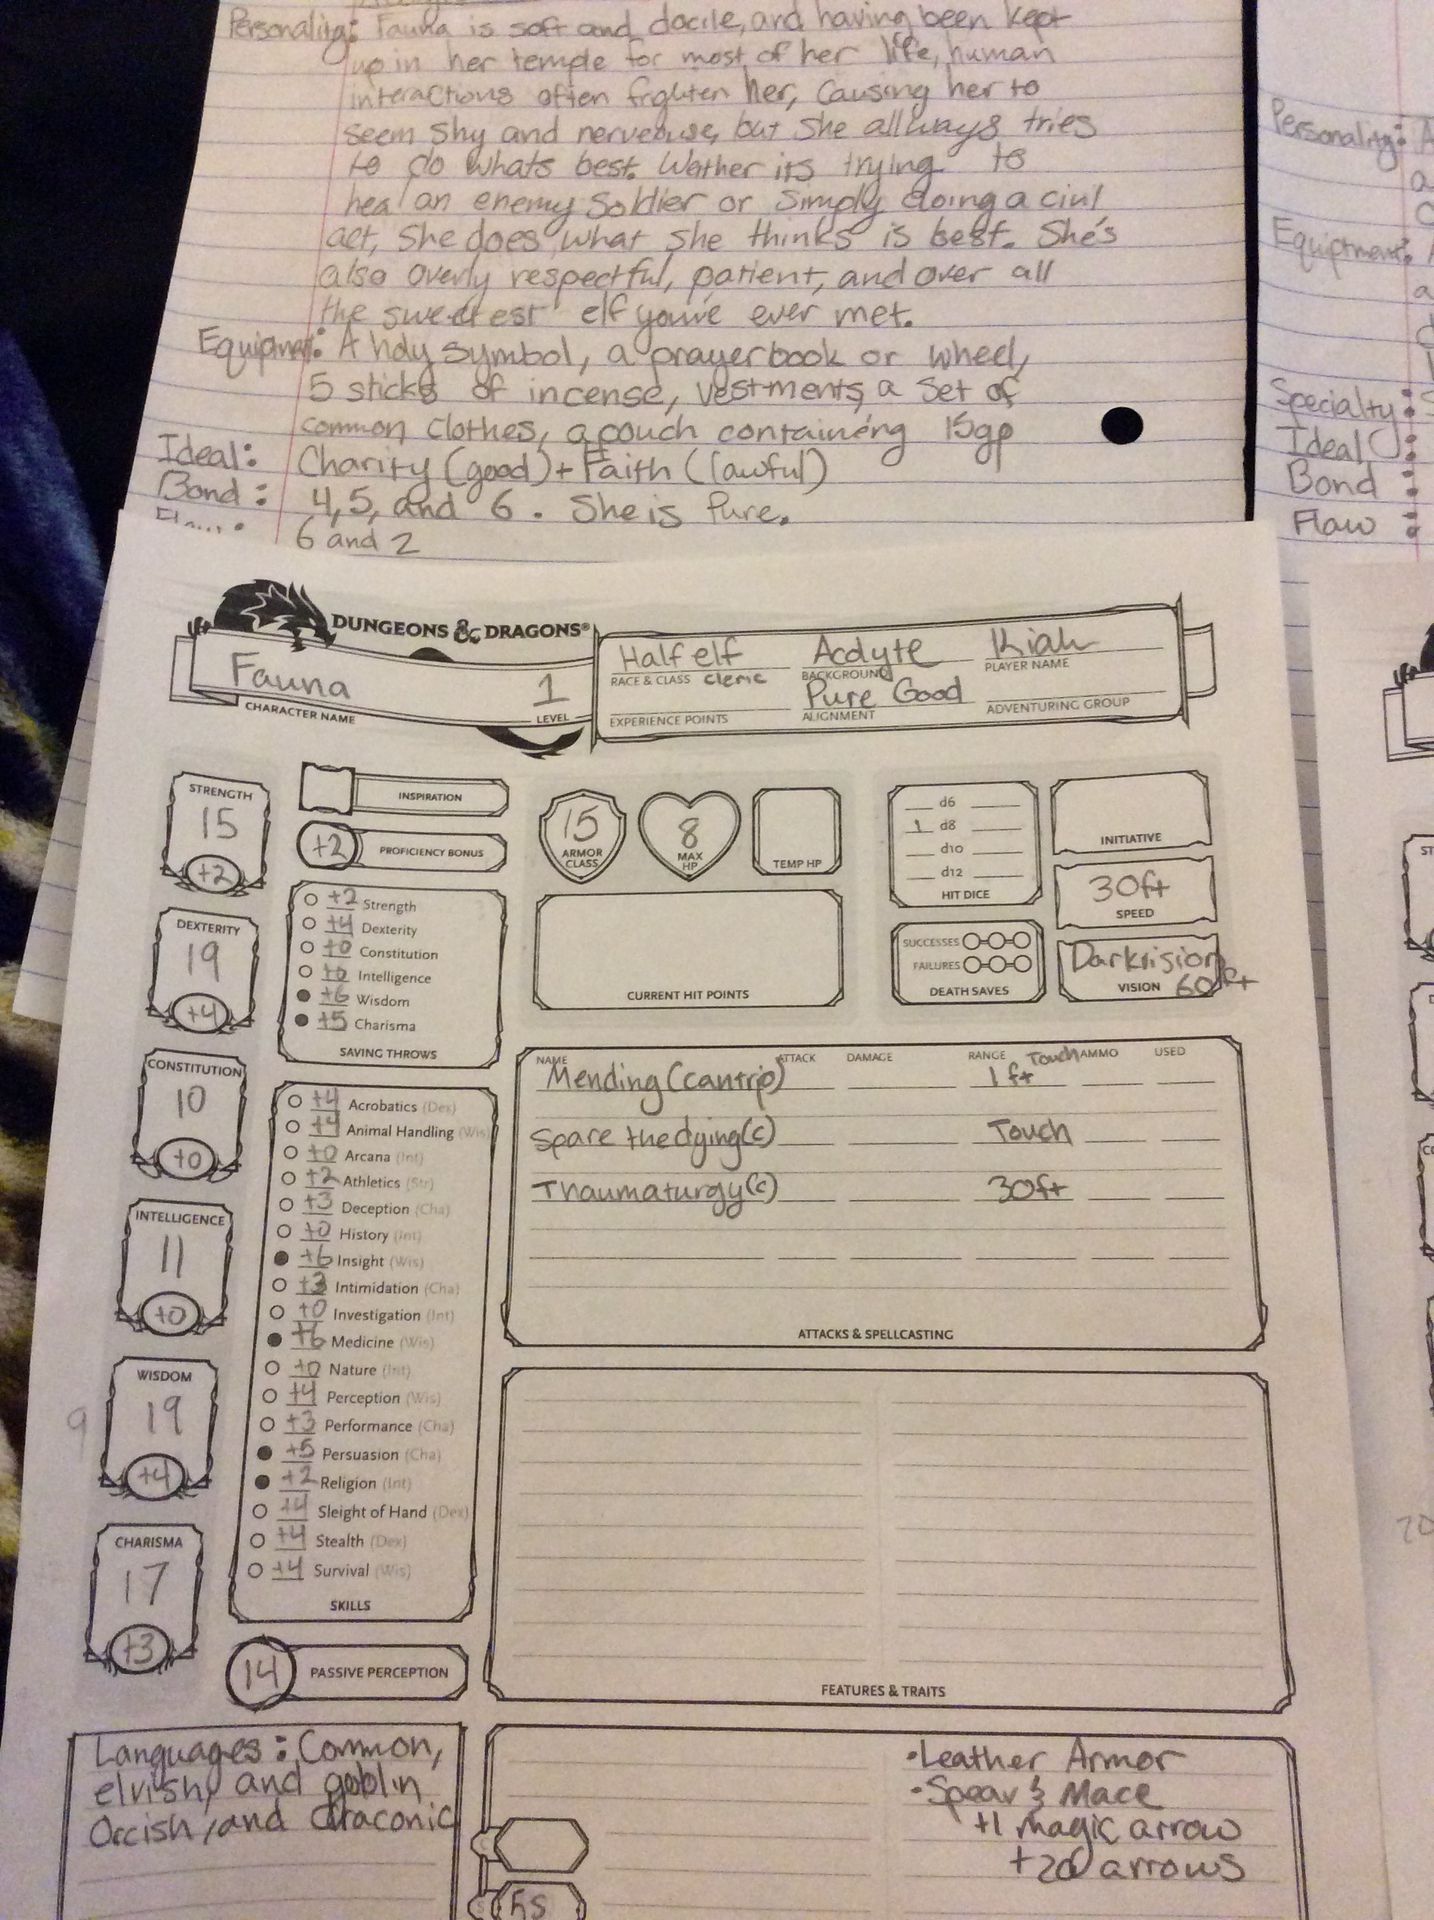 Personality: Fauna is soft and docile, and having been kept
up in her temple for most of her life, human
interactions often frighten her, causing her to
seem shy and nerveouse, but she allways tries
to do whats best. Wether its trying to
heal an enemy soldier or simply doing a civil
act, she does what she thinks is best. She's
also overly respectful, patient, and over all
the sweetest elf you've ever met.
Equipment: A holy symbol, a prayerbook or wheel,
5 sticks of incense, vestments, a set of
common clothes, a pouch containing 15gp
Ideal: Charity (good) + Faith (lawful)
Bond: 4, 5, and 6. She is Pure.
6 and 2
Personality:
Equiptment:
Specialty:
Ideal:
Bond:
Flaw:
DUNGEONS & DRAGONS®
Fauna 1
CHARACTER NAME LEVEL
Half elf Acolyte Kiah
RACE & CLASS cleric BACKGROUND PLAYER NAME
Pure Good
EXPERIENCE POINTS ALIGNMENT ADVENTURING GROUP
STRENGTH
15
+2
DEXTERITY
19
+4
CONSTITUTION
10
+0
INTELLIGENCE
11
+0
WISDOM
19
+4
9
CHARISMA
17
+3
INSPIRATION
+2 PROFICIENCY BONUS
+2 Strength
+4 Dexterity
+0 Constitution
+0 Intelligence
+6 Wisdom
+5 Charisma
SAVING THROWS
+4 Acrobatics (Dex)
+4 Animal Handling (Wis)
+0 Arcana (Int)
+2 Athletics (Str)
+3 Deception (Cha)
+0 History (Int)
+6 Insight (Wis)
+3 Intimidation (Cha)
+0 Investigation (Int)
+6 Medicine (Wis)
+0 Nature (Int)
+4 Perception (Wis)
+3 Performance (Cha)
+5 Persuasion (Cha)
+2 Religion (Int)
+4 Sleight of Hand (Dex)
+4 Stealth (Dex)
+4 Survival (Wis)
SKILLS
14 PASSIVE PERCEPTION
15
ARMOR
CLASS
8
MAX
HP
TEMP HP
CURRENT HIT POINTS
d6
1 d8
d10
d12
HIT DICE
SUCCESSES
FAILURES
DEATH SAVES
INITIATIVE
30ft
SPEED
Darkvision
VISION 60ft
NAME ATTACK DAMAGE RANGE Touch AMMO USED
Mending (cantrip) 1 ft
Spare the dying (c) Touch
Thaumaturgy (c) 30ft
ATTACKS & SPELLCASTING
FEATURES & TRAITS
Languages: Common,
elvish, and goblin
Orcish, and draconic
•Leather Armor
•Spear & Mace
+1 magic arrow
+20 arrows